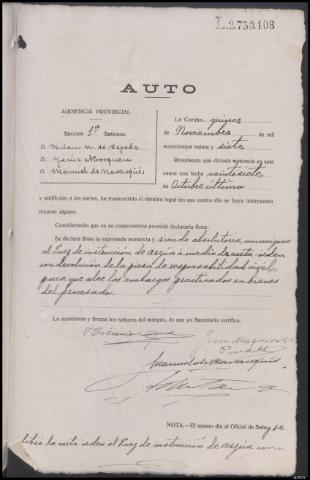 L.2.750.108
AUTO
AUDIENCIA PROVINCIAL
Sección 1ª Señores:
D. M. de
D. Javier Mosquera
D. Manuel de
La Coruña quince
de Noviembre de mil
novecientos treinta y siete
Resultando que dictada sentencia en esta
causa con fecha veintisiete
de Octubre último
y notificado a las partes, ha transcurrido el término legal sin que contra ella se haya interpuesto
recurso alguno.
Considerando que es de consecuencia procede declararla firme.
Se declara firme la expresada sentencia y siendo absolutoria, comuníquese
al Juez de instrucción de a medio de carta-orden
con devolución de la pieza de responsabilidad civil
para que alce los embargos practicados en bienes
del procesado.
Lo acordaron y firman los señores del margen, de que yo Secretario certifico.
NOTA.—El mismo día al Oficial de Sala
libré la carta-orden al Juez de instrucción de